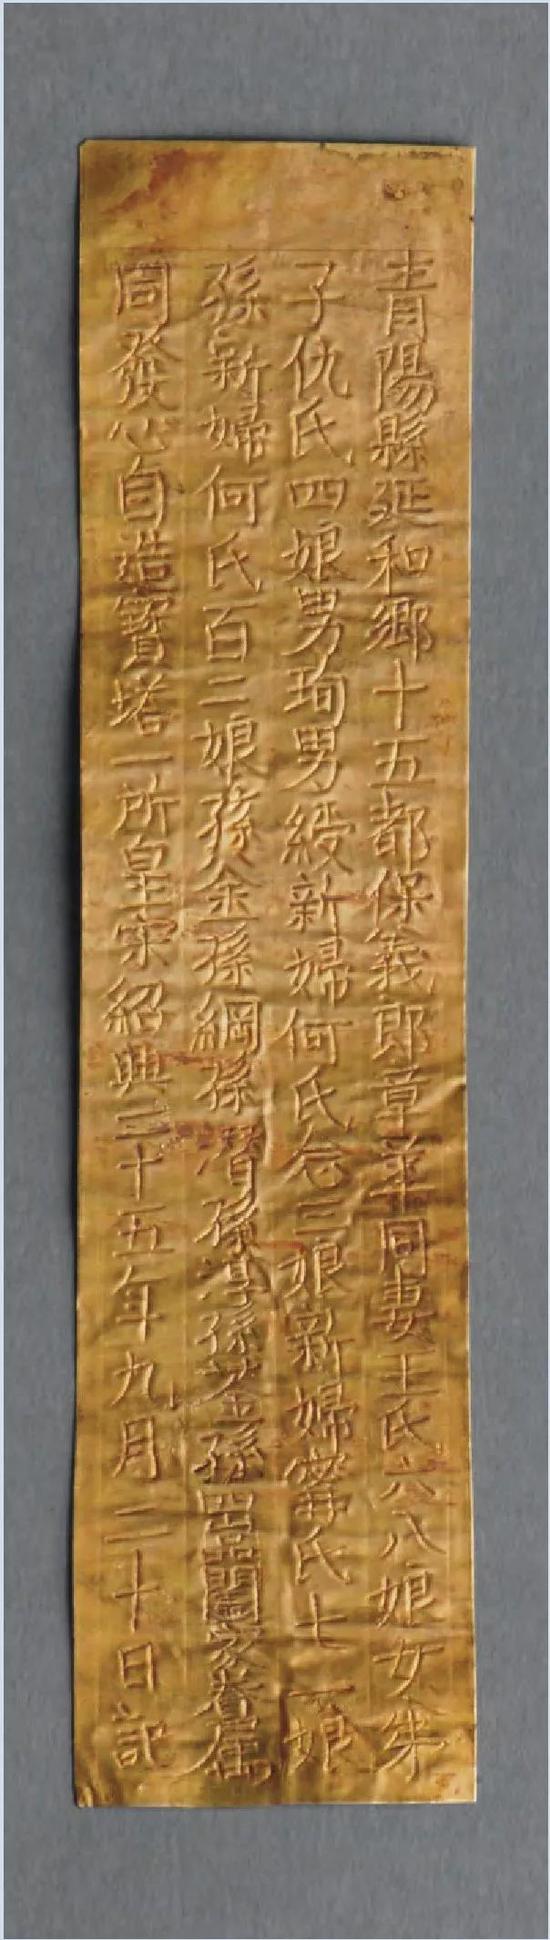 青陽縣延和鄉十五都保義郎章華同妻王氏六八娘女弟
子仇氏四娘男珣男綬新婦何氏念三娘新婦甯氏七一娘
孫新婦何氏百二娘孫金孫綱孫潛孫淳孫荃孫閤家眷屬
同發心自造寶塔一所皇宋紹興二十五年九月二十日記